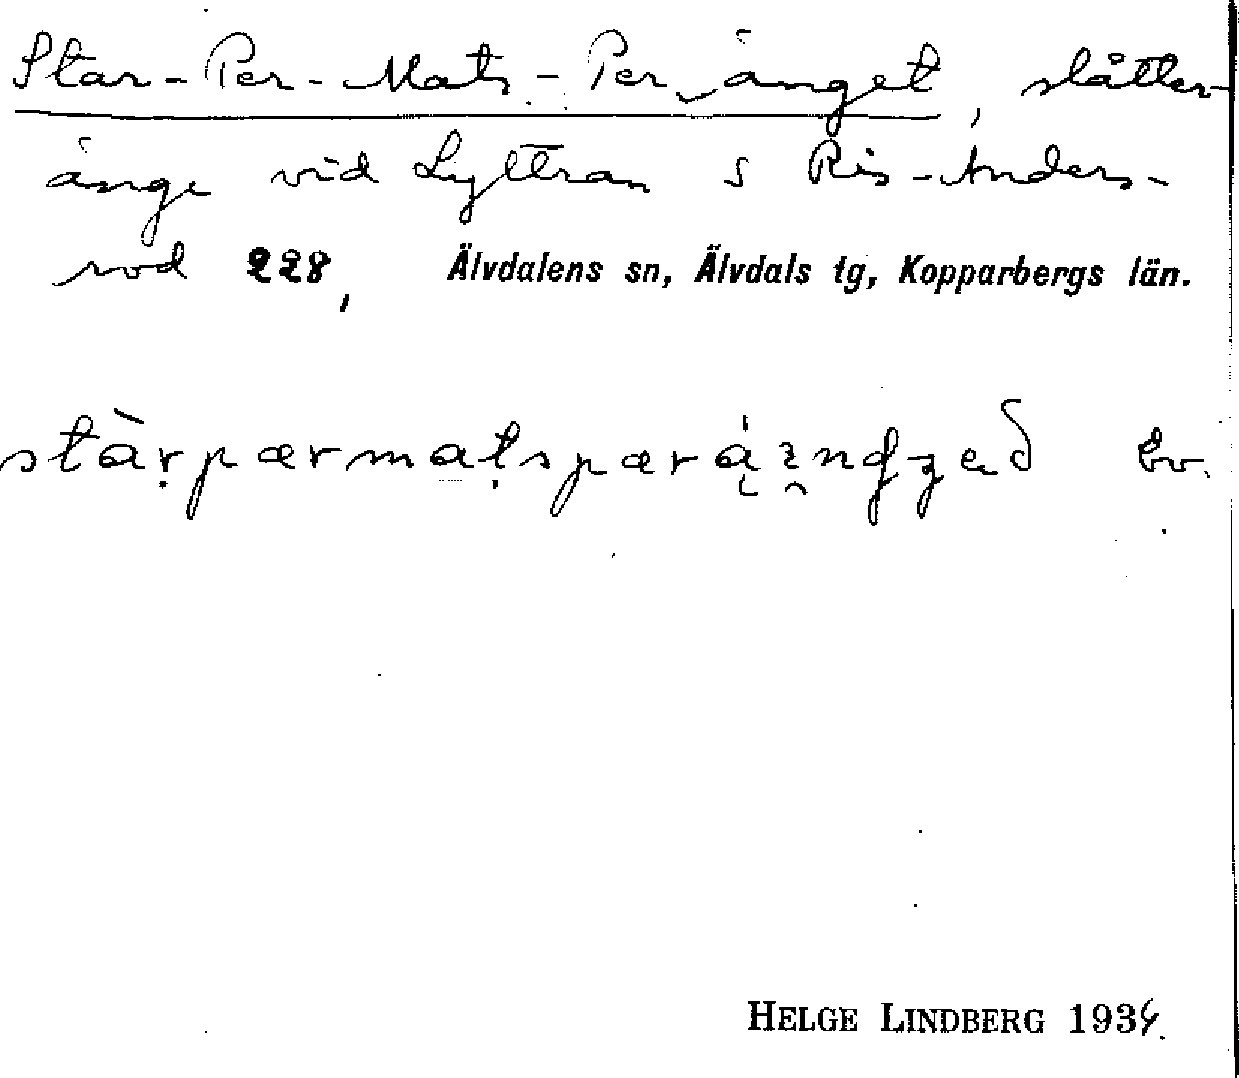 Star-Per-Mats-Per änget, slåtter-
änge vid Lyttran s Ris-Anders-
rod 228, Älvdalens sn, Älvdals tg, Kopparbergs län.
bv.
HELGE LINDBERG 1934.